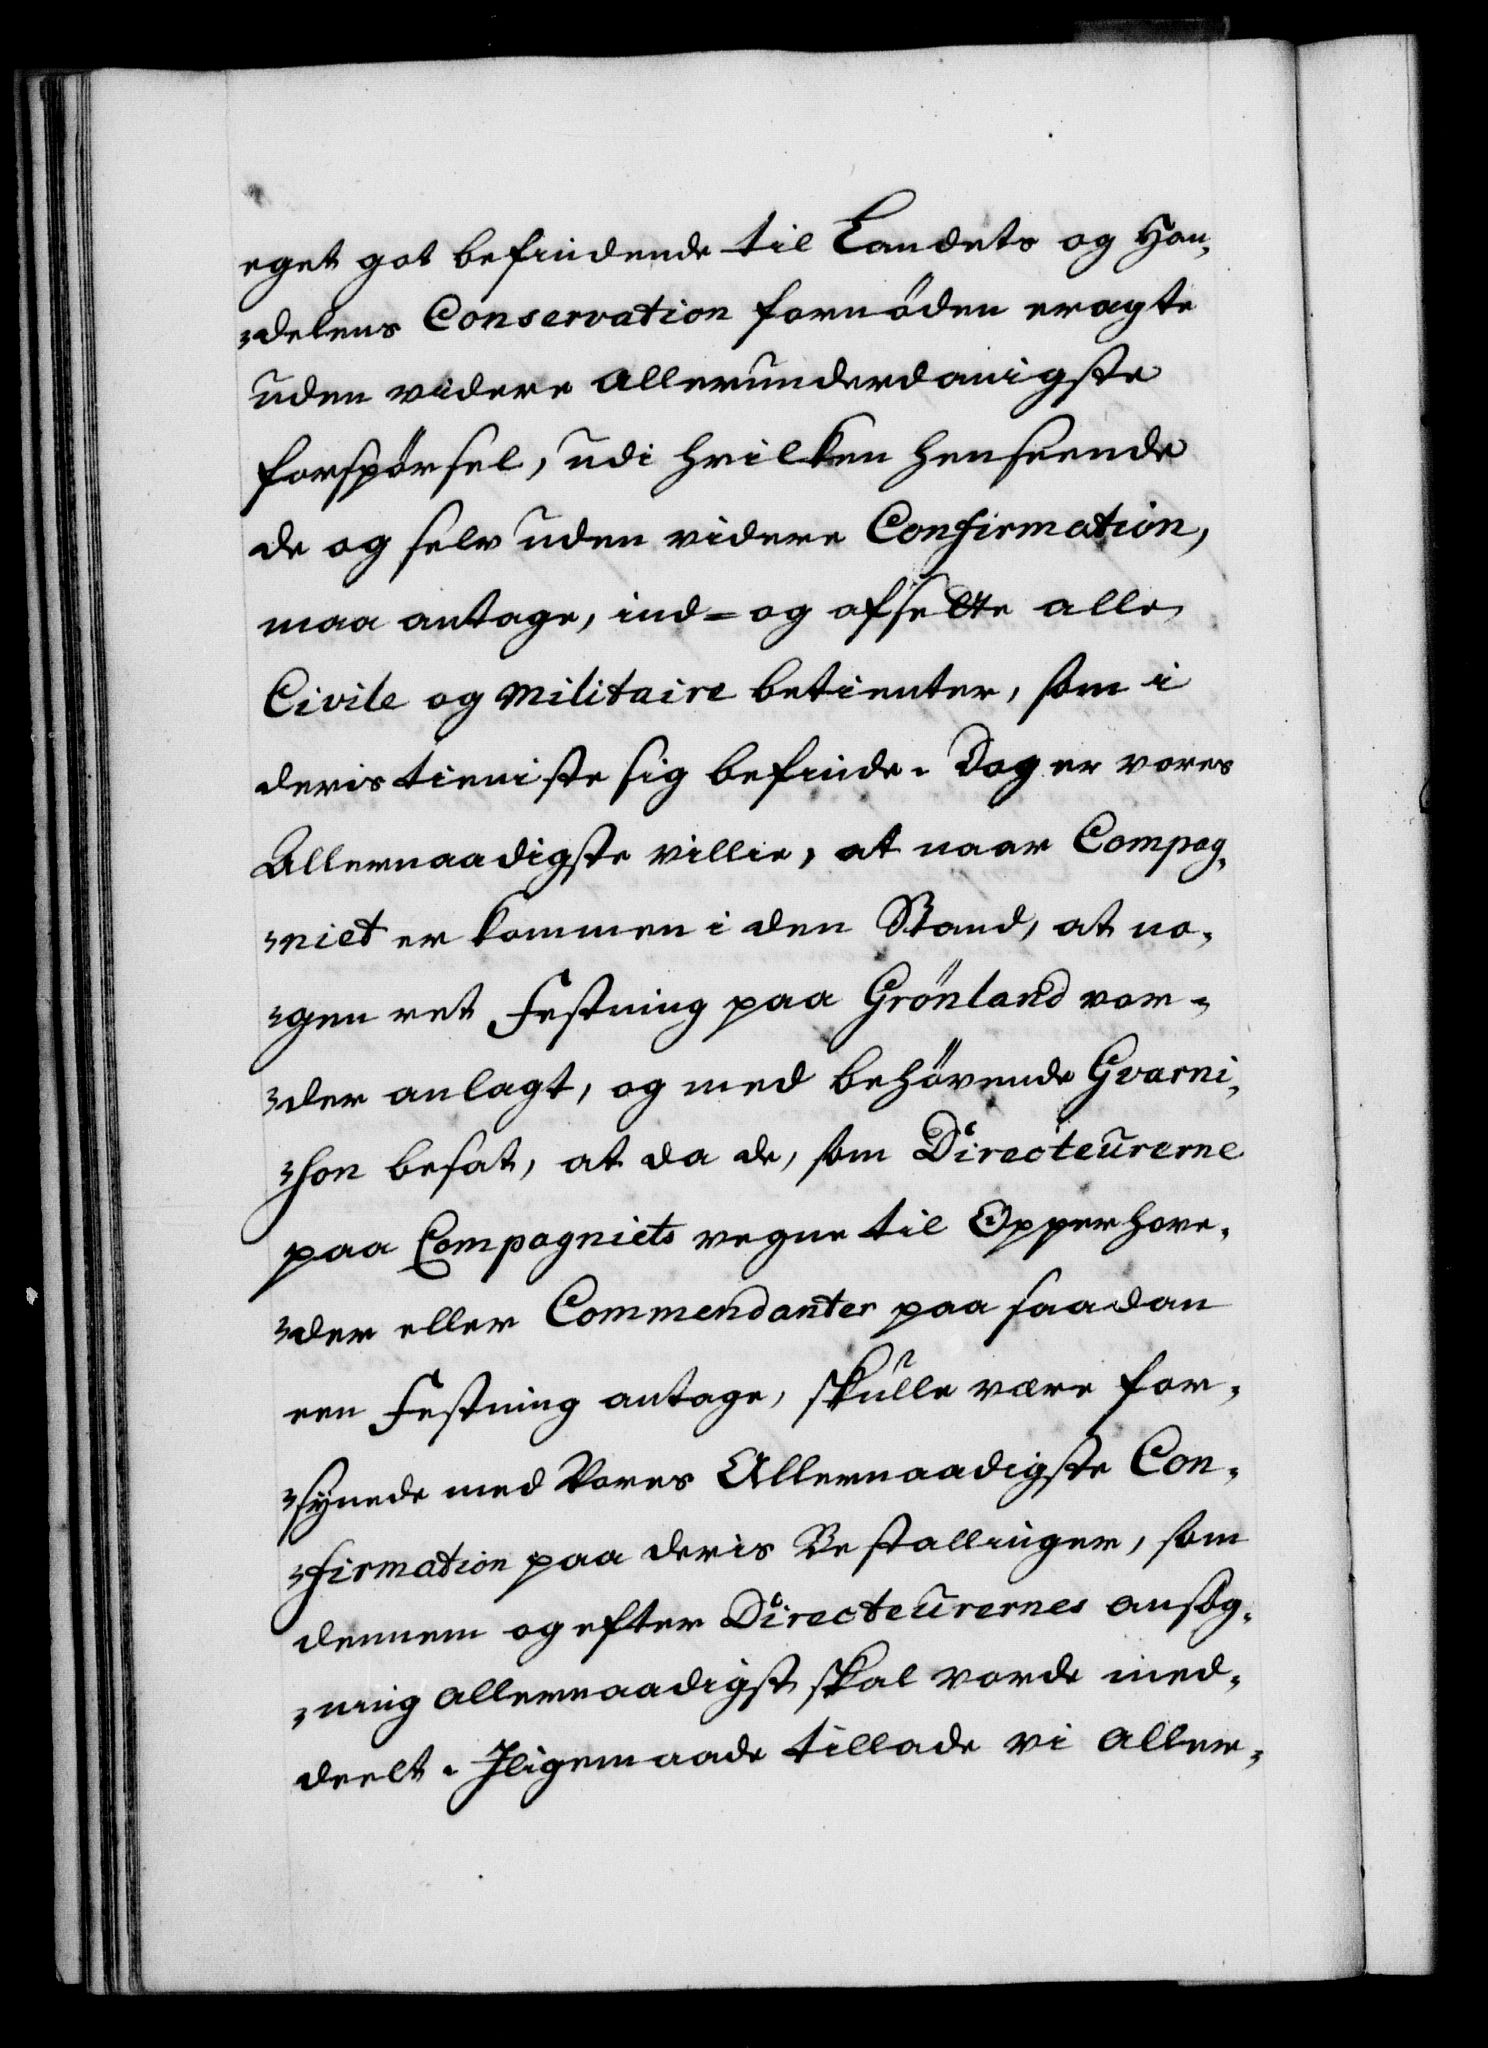 eget got befindende til Landets og Han-
-delens Conservation fornöden eragte
uden videre allerunderdanigste
forspörsel, udi hvilken henseende
de og selv uden videre Confirmation,
maa antage, ind- og afsette alle
Civile og Militaire betienter, som i
deris tieniste sig befinde. Dog er vores
Allernaadigste villie, at naar Compag-
-niet er kommen i den Stand, at no-
-gen ret Festning paa Grönland vor-
-der anlagt, og med behövende Gvarni-
-son besat, at da de, som Directeurerne
paa Compagniets vegne til Opperhove-
-der eller Commendanter paa saadan
een Festning antage, skulle være for-
-synede med Vores Allernaadigste Con-
-firmation paa deris Bestallinger, som
dennem og efter Directeurernes ansög-
-ning allernaadigst skal vorde med-
deelt. Iligemaade tillade vi aller-